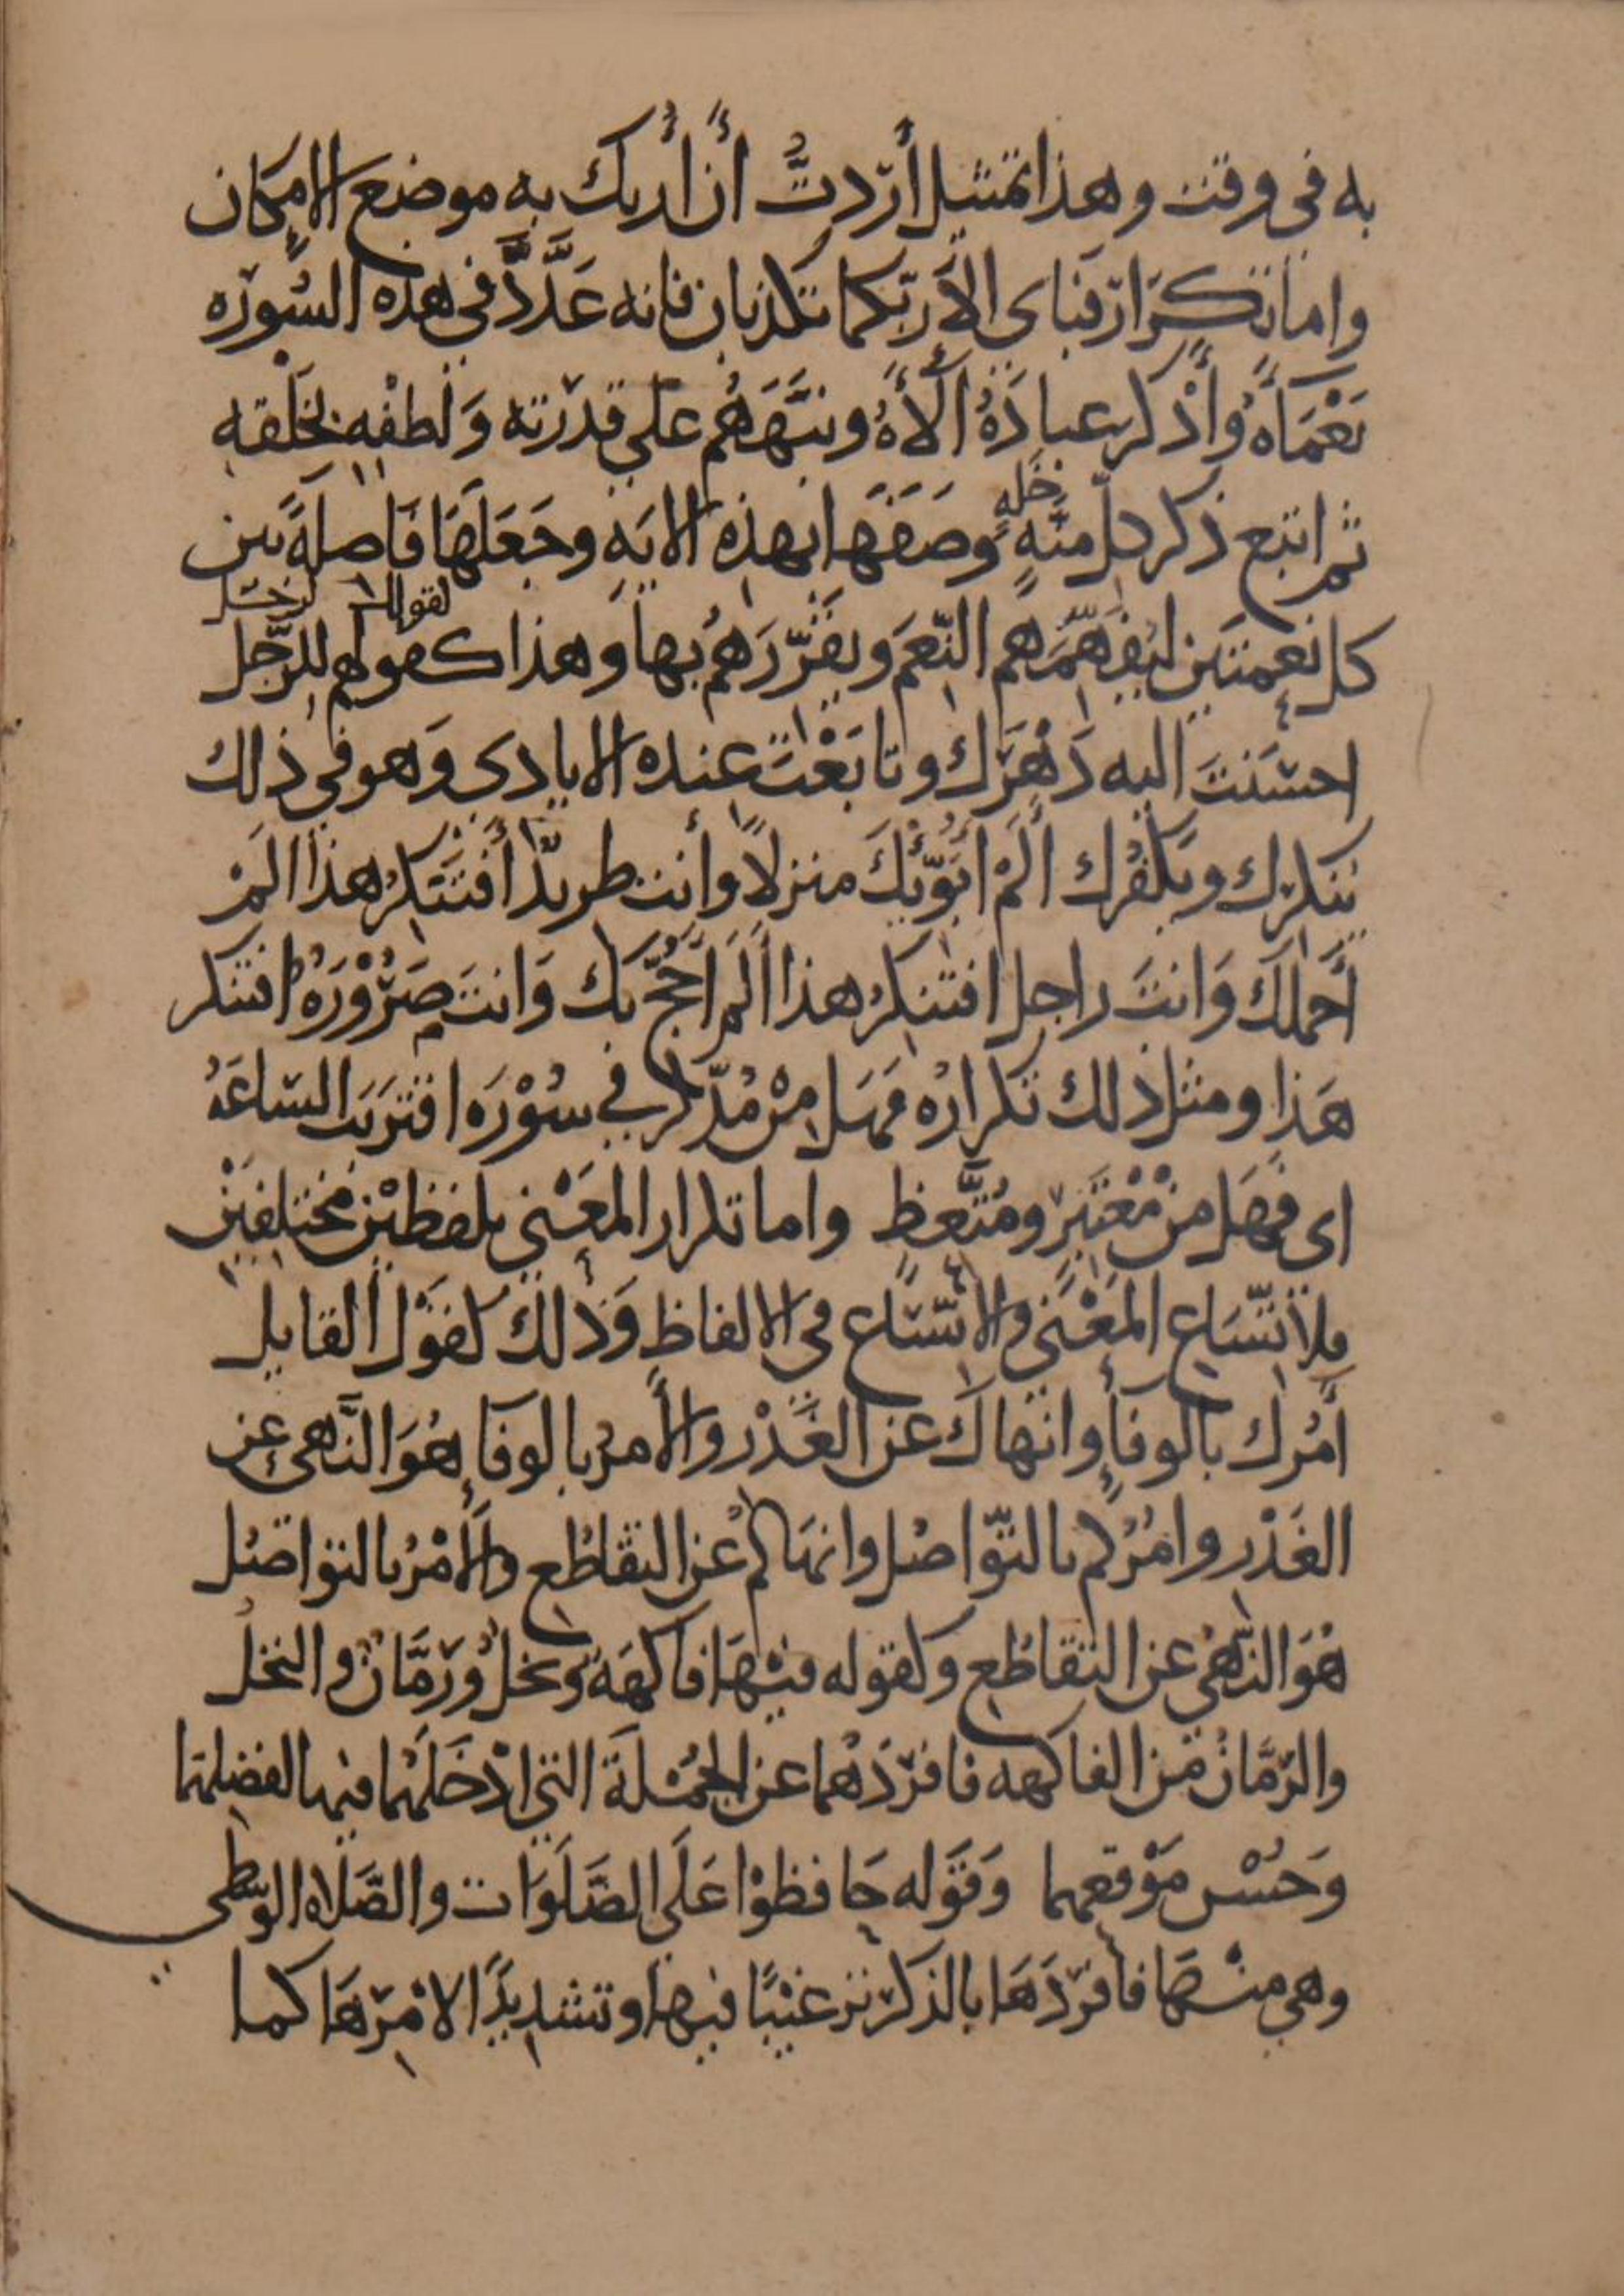 به في وقت وهذا تمثيل أردتُ أن أُريك به موضع الامكان
واما تكرار فباى الآ ربكما تكذبان فانه عَدَّدَ في هذه السُورَه
نَعْمَاَهُ وأذكر عبادَهُ آلآءهُ ونبَّهَهُم على قدرته وَلطفْهِ بخلقه
ثم اتبع ذكر كل منَّهٍ خَلهٍ وصَفَهَا بهذه الايَه وجَعَلَهَا فَاصلةً بين
لقولك لرجل
كل نعمتين ليُفَهِّمَهم النّعَم ويقَرّرَهُم بها وهذا كقولهم للرَّجل
احسَنتَ اليه دَهْرَك وتابَعْتَ عنده الايادى وَهو في ذلك
ينكرك ويكفُرك ألَمْ أبَوّئكَ منزلاً وأنت طريدٌ أفتنكرُ هذا المْ
أحملك وَانتَ راجل افتنكرُ هذا ألَم أحُجّ بك وَانتَ صَرُوْرَهٌ افتنكر
هَذا ومثل ذلك تكرارُه فهَل مِنْ مُدّكرٍ في سُوْرَه اقتَربَت السَاعَهُ
اى فهَل منْ مُعْتَبِرٍ ومُتَّعظٍ واما تكرار المعَنْي بلفظيْن مختلفَيْن
فلاتّسَاع المَعْنَي والاتّسَاع في الالفاظِ وَذلك كقَوْل القايل
أمُرك بالوفأِ وانهاكَ عن الغَدْر والأمرُ بالوفاءِ هُوَ النَّهى عن
الغَدْر وامُرُكم بالتّوَاصُل وانهَاكم عْن التقاطُع والأمْرُ بالتواصُل
هُوَ النَّهْي عن التقاطُع وكقوله فيْهَا فاكهَةٌ ونخلٌ ورُمَّانٌ والنخل
والرّمَّانُ من الفاكهه فافرَدَهُما عن الجمُلَة التي ادْخَلَهُما فيها لفضلهما
وَحُسْن مَوْقعهما وَقَوله حَافظوْا عَلَى الصَّلَوَات والصَّلاه الوُسْطى
وهي منْهَا فأفرَدَهَا بالذكر ترغيْبًا فيها وتشديدًا لامْرهَا كما